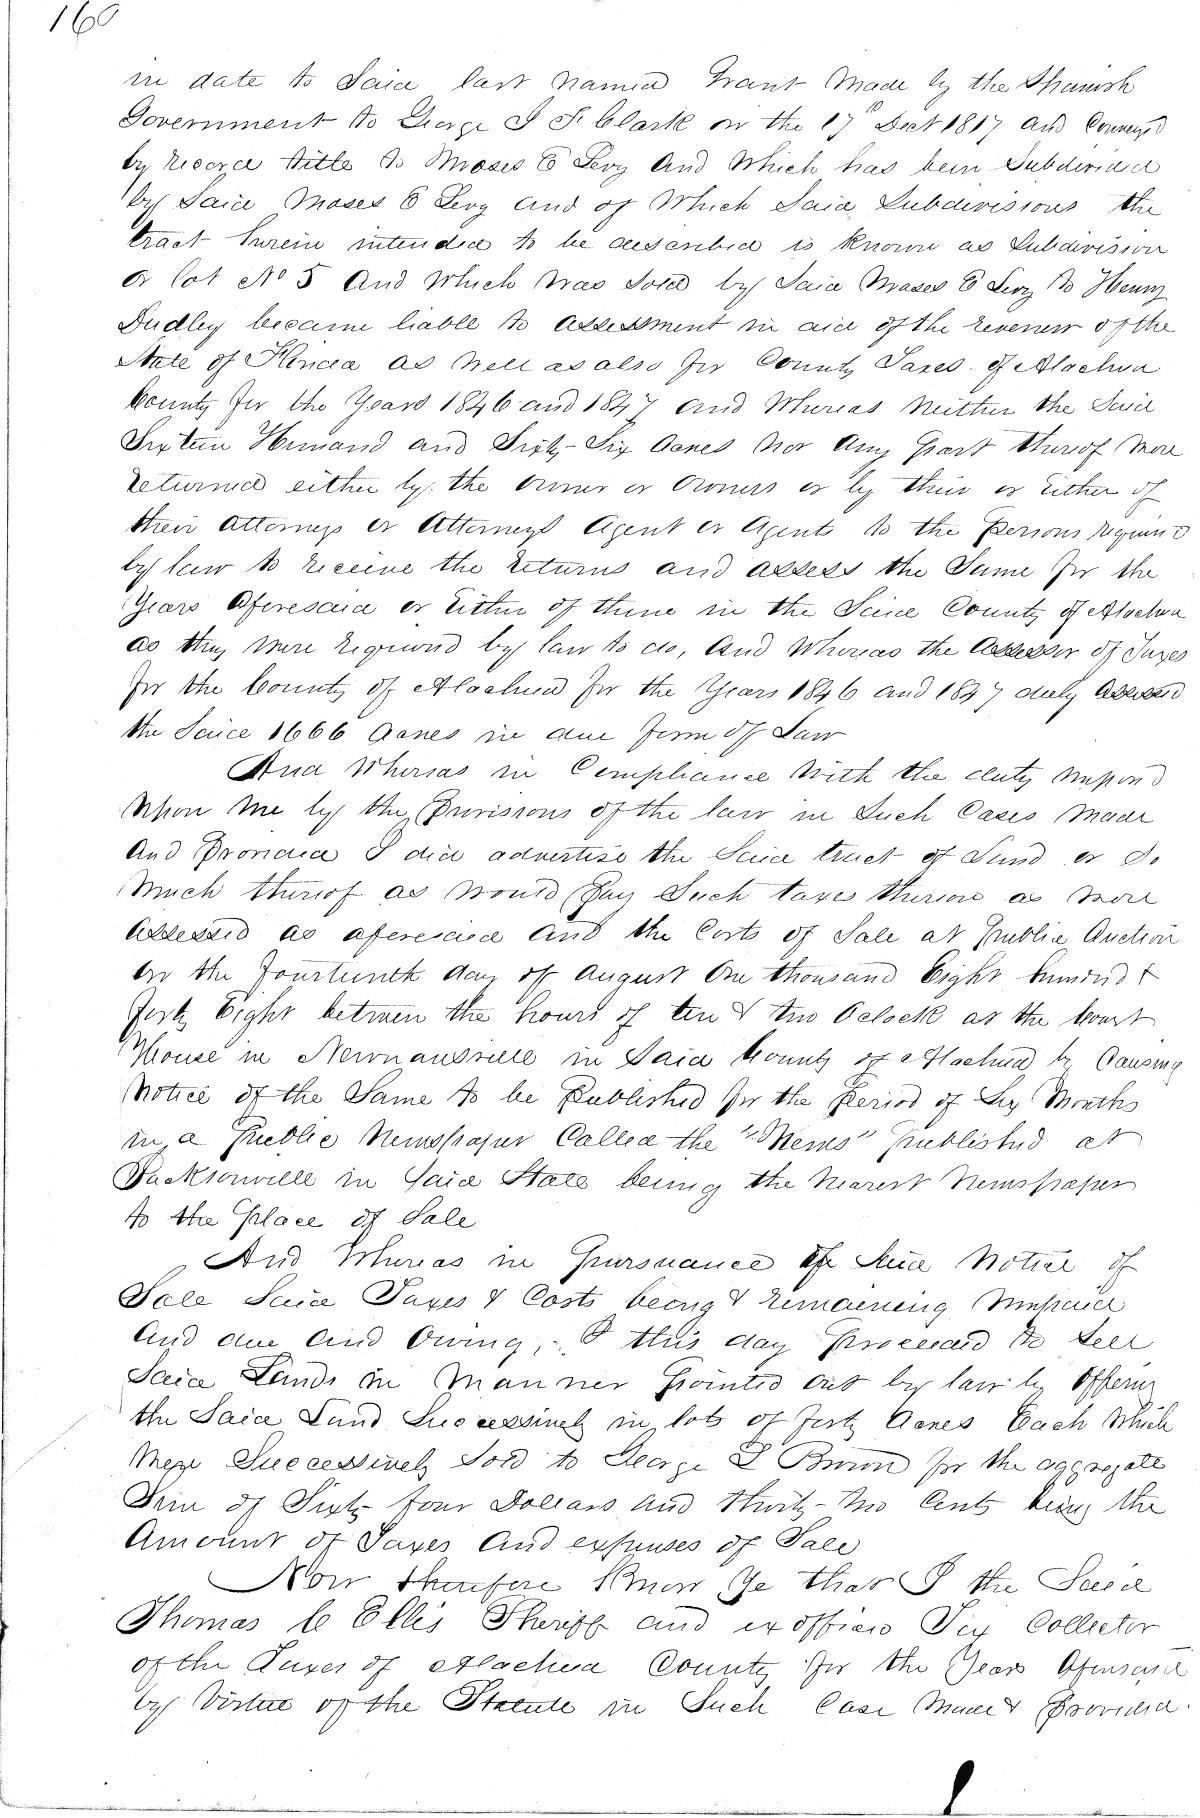 160
in date to Said last named Grant Made by the Spanish
Government to George J F Clark on the 17th Dect 1817 and Conveyed
by record title to Moses E Levy And Which has been Subdivided
by Said Moses E Levy and of Which Said Subdivisions the
tract herein intended to be described is known as Subdivision
or lot No 5 And Which Was Sold by Said Moses E Levy to Henry
Dudley became liable to Assessment in aid of the revenue of the
State of Florida as Well as also for County Taxes of Alachua
County for the Years 1846 and 1847 and Whereas Neither the Said
Sixteen Hundred and Sixty-Six Acres Nor Any Part thereof Were
returned either by the Owner or Owners or by their or Either of
their Attorneys or Attorneys Agent or Agents to the Persons required
by law to receive the returns and assess the Same for the
Years Aforesaid or Either of them in the Said County of Alachua
as they Were required by law to do, And Whereas the Assessor of Taxes
for the County of Alachua for the Years 1846 and 1847 duly Assessed
the Said 1666 Acres in due form of Law
And Whereas in Compliance With the duty imposed
Upon Me by the Provisions of the law in Such Cases Made
And Provided I did advertise the Said tract of Land or So
Much thereof as Would Pay Such taxes thereon as Were
Assessed as aforesaid And the Costs of Sale at Public Auction
on the fourteenth day of August One thousand Eight hundred &
forty Eight between the hours of ten & two Oclock at the Court
House in Newnansville in Said County of Alachua by Causing
Notice of the Same to be Published for the Period of Six Months
in a Public Newspaper Called the "News" published at
Jacksonville in Said State being the Nearest Newspaper
to the Place of Sale
And Whereas in Pursuance of Said Notice of
Sale Said Taxes & Costs being & remaining Unpaid
And due And Owing, I this day Proceeded to Sell
Said Lands in Manner Pointed out by law by Offering
the Said Land Successively in lots of forty Acres Each Which
Were Successively Sold to George L Brown for the aggregate
Sum of Sixty-four Dollars And thirty-two Cents being the
Amount of Taxes And expenses of Sale
Now therefore Know Ye that I the Said
Thomas C Ellis Sheriff and ex officio Tax Collector
of the Taxes of Alachua County for the Years Aforesaid
by Virtue of the Statute in Such Case Made & Provided